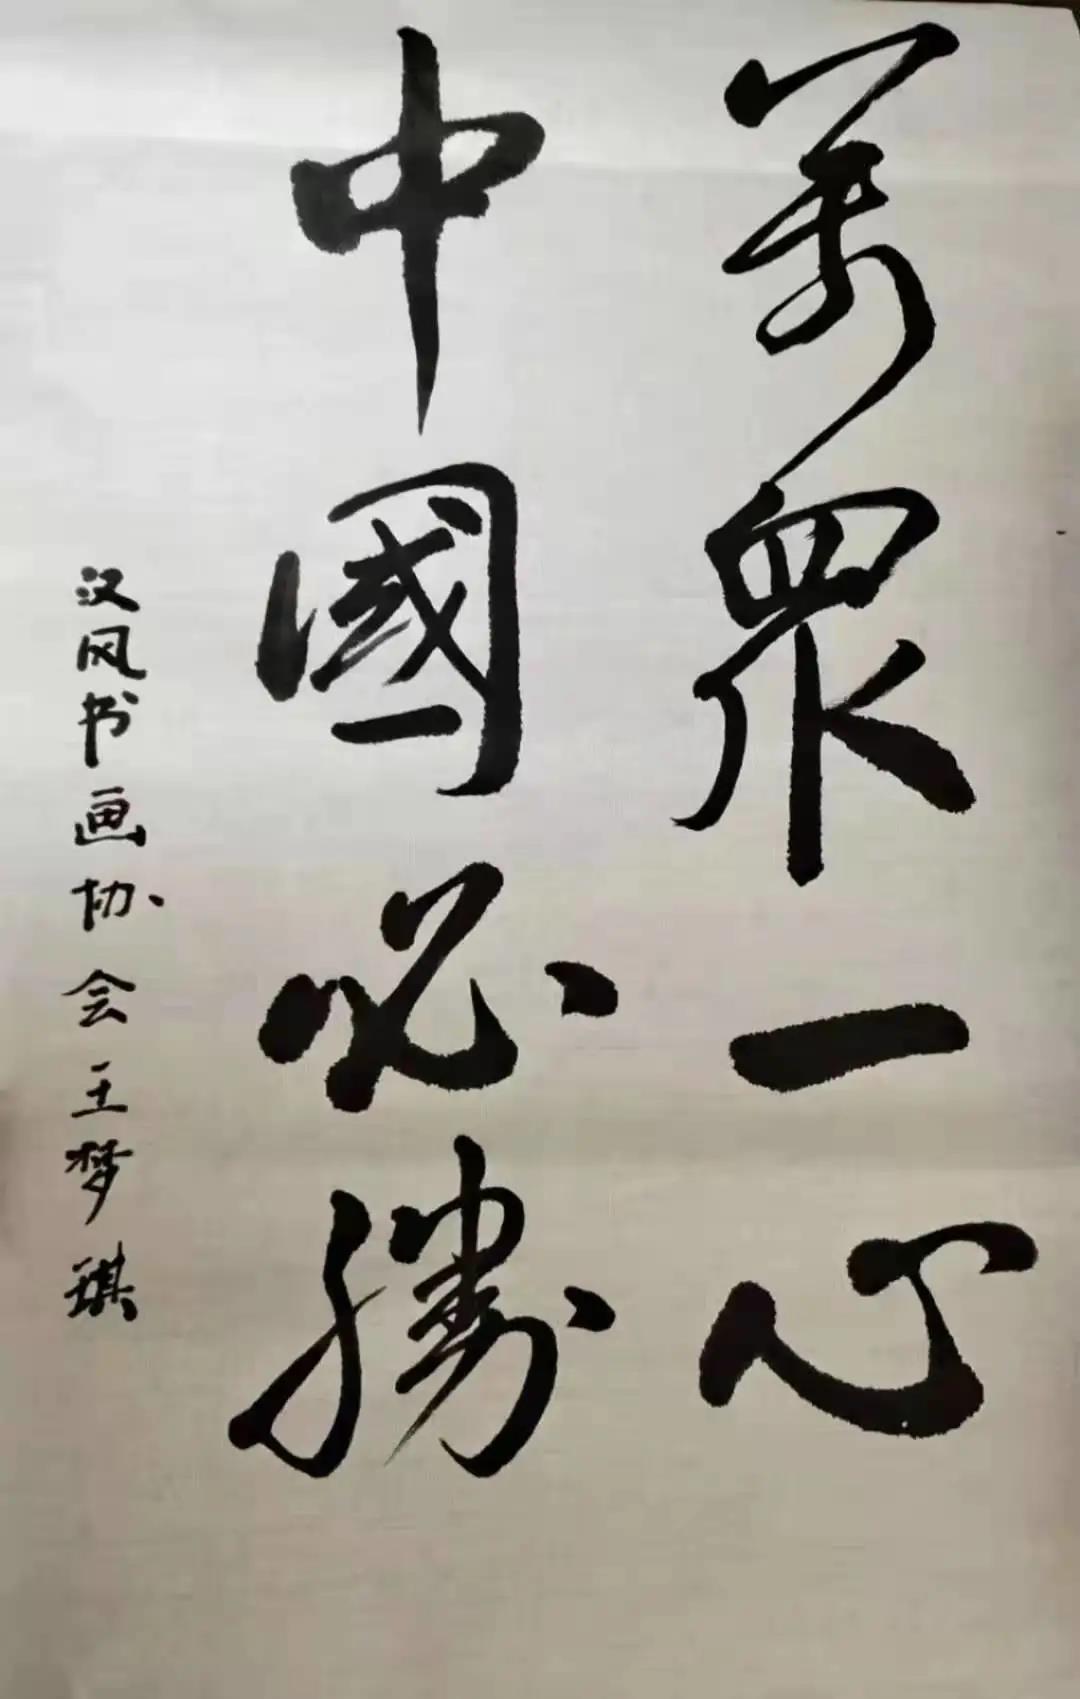 萬眾一心
中國必勝
汉风书画协会王梦琪